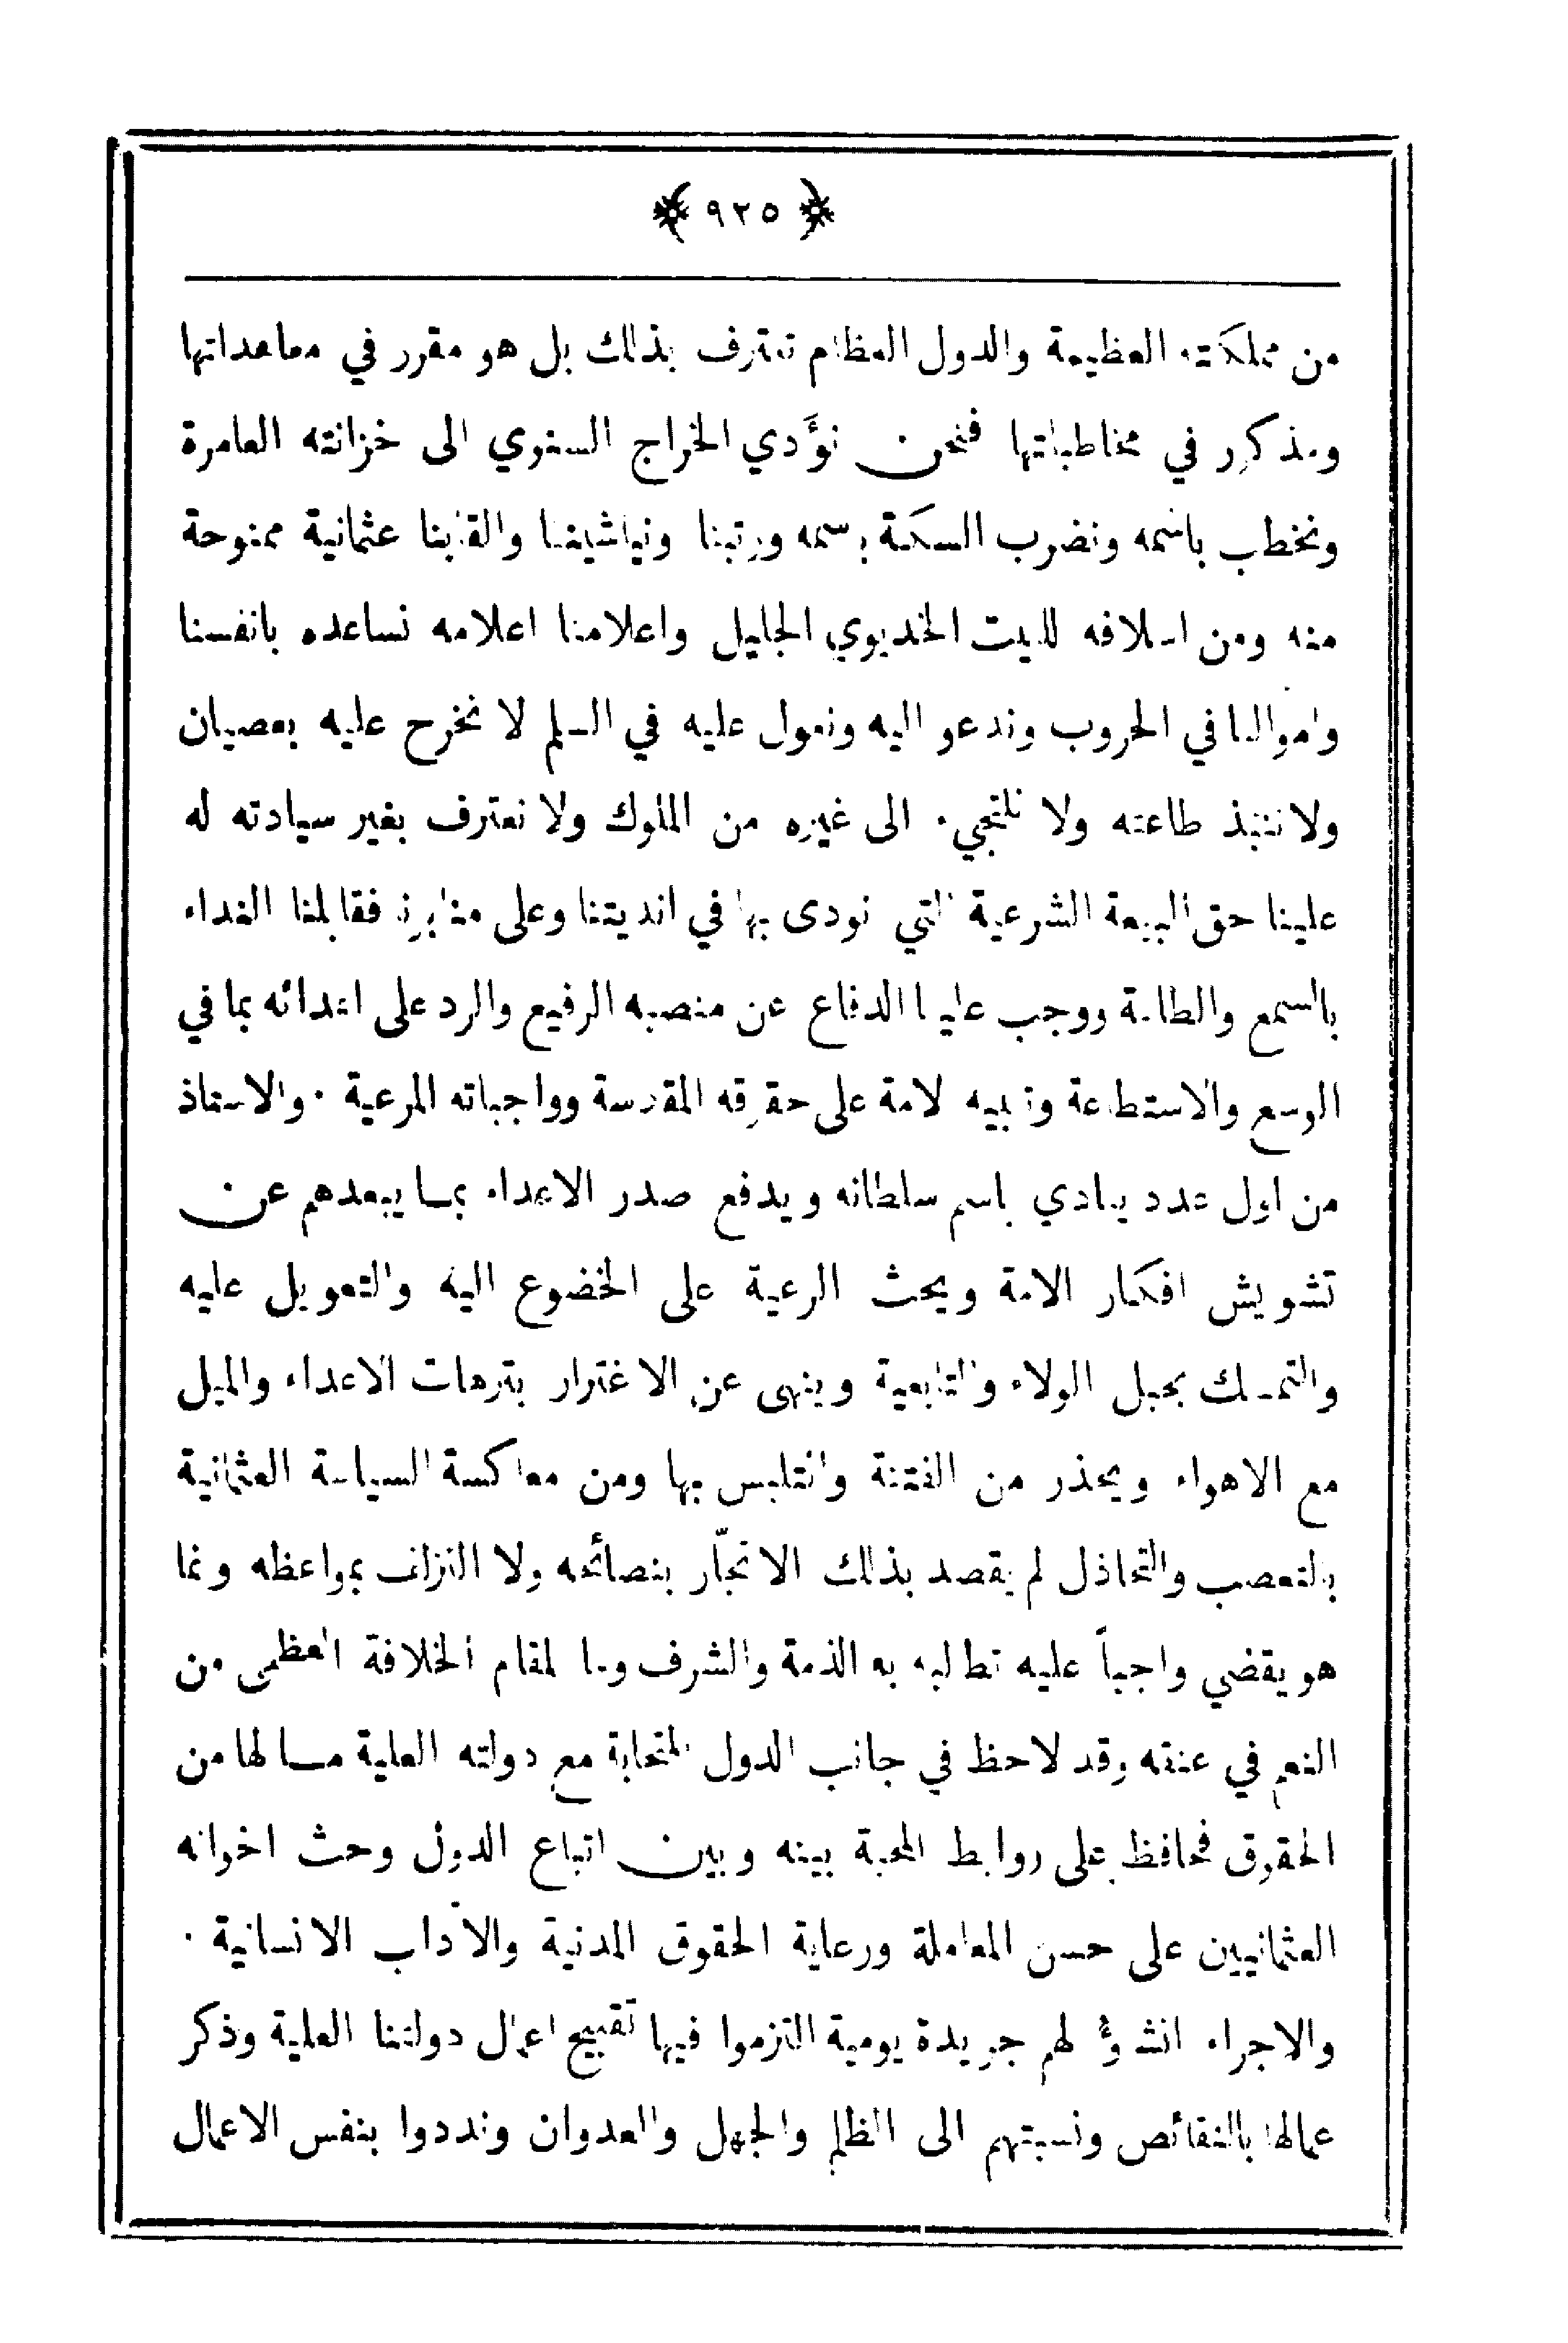 ﴿ ٩٢٥ ﴾
من مملكته العظيمة والدول العظام تعترف بذلك بل هو مقرر في معاهداتها
ومذكور في مخاطباتها فنحن نؤدي الخراج السنوي الى خزانته العامرة
ونخطب باسمه ونضرب السكة برسمه ورتبنا ونياشيننا والقابنا عثمانية ممنوحة
منه ومن اسلافه للبيت الخديوي الجليل واعلامنا اعلامه نساعده بانفسنا
واموالنا في الحروب وندعو اليه ونعول عليه في السلم لا نخرج عليه بعصيان
ولا ننبذ طاعته ولا نلتجيء الى غيره من الملوك ولا نعترف بغير سيادته له
علينا حق البيعة الشرعية التي نودى بها في انديتنا وعلى منابرنا فقابلنا النداء
بالسمع والطاعة ووجب علينا الدفاع عن منصبه الرفيع والرد على اعدائه بما في
الوسع والاستطاعة وتنبيه الامة على حقوقه المقدسة وواجباته المرعية ٠ والاستاذ
من اول عدد ينادي باسم سلطانه ويدفع صدر الاعداء بما يبعدهم عن
تشويش افكار الامة ويحث الرعية على الخضوع اليه والتعويل عليه
والتمسك بحبل الولاء والتابعية وينهى عن الاغترار بترهات الاعداء والميل
مع الاهواء ويحذر من الفتنة والتلبس بها ومن معاكسة السياسة العثمانية
بالتعصب والتخاذل لم يقصد بذلك الاتجّار بنصائحه ولا التزلف بمواعظه وانما
هو يقضي واجباً عليه تطالبه به الذمة والشرف وما لمقام الخلافة العظمى من
النعم في عنقه وقد لاحظ في جانب الدول المتحابة مع دولته العلية مــا لها من
الحقوق فحافظ على روابط المحبة بينه وبين اتباع الدول وحث اخوانه
العثمانيين على حسن المعاملة ورعاية الحقوق المدنية والآداب الانسانية ٠
والاجراء انشؤا لهم جريدة يومية التزموا فيها تقبيح اعمال دولتنا العلية وذكر
عمالها بالنقائص ونسبتهم الى الظلم والجهل والعدوان ونددوا بنفس الاعمال